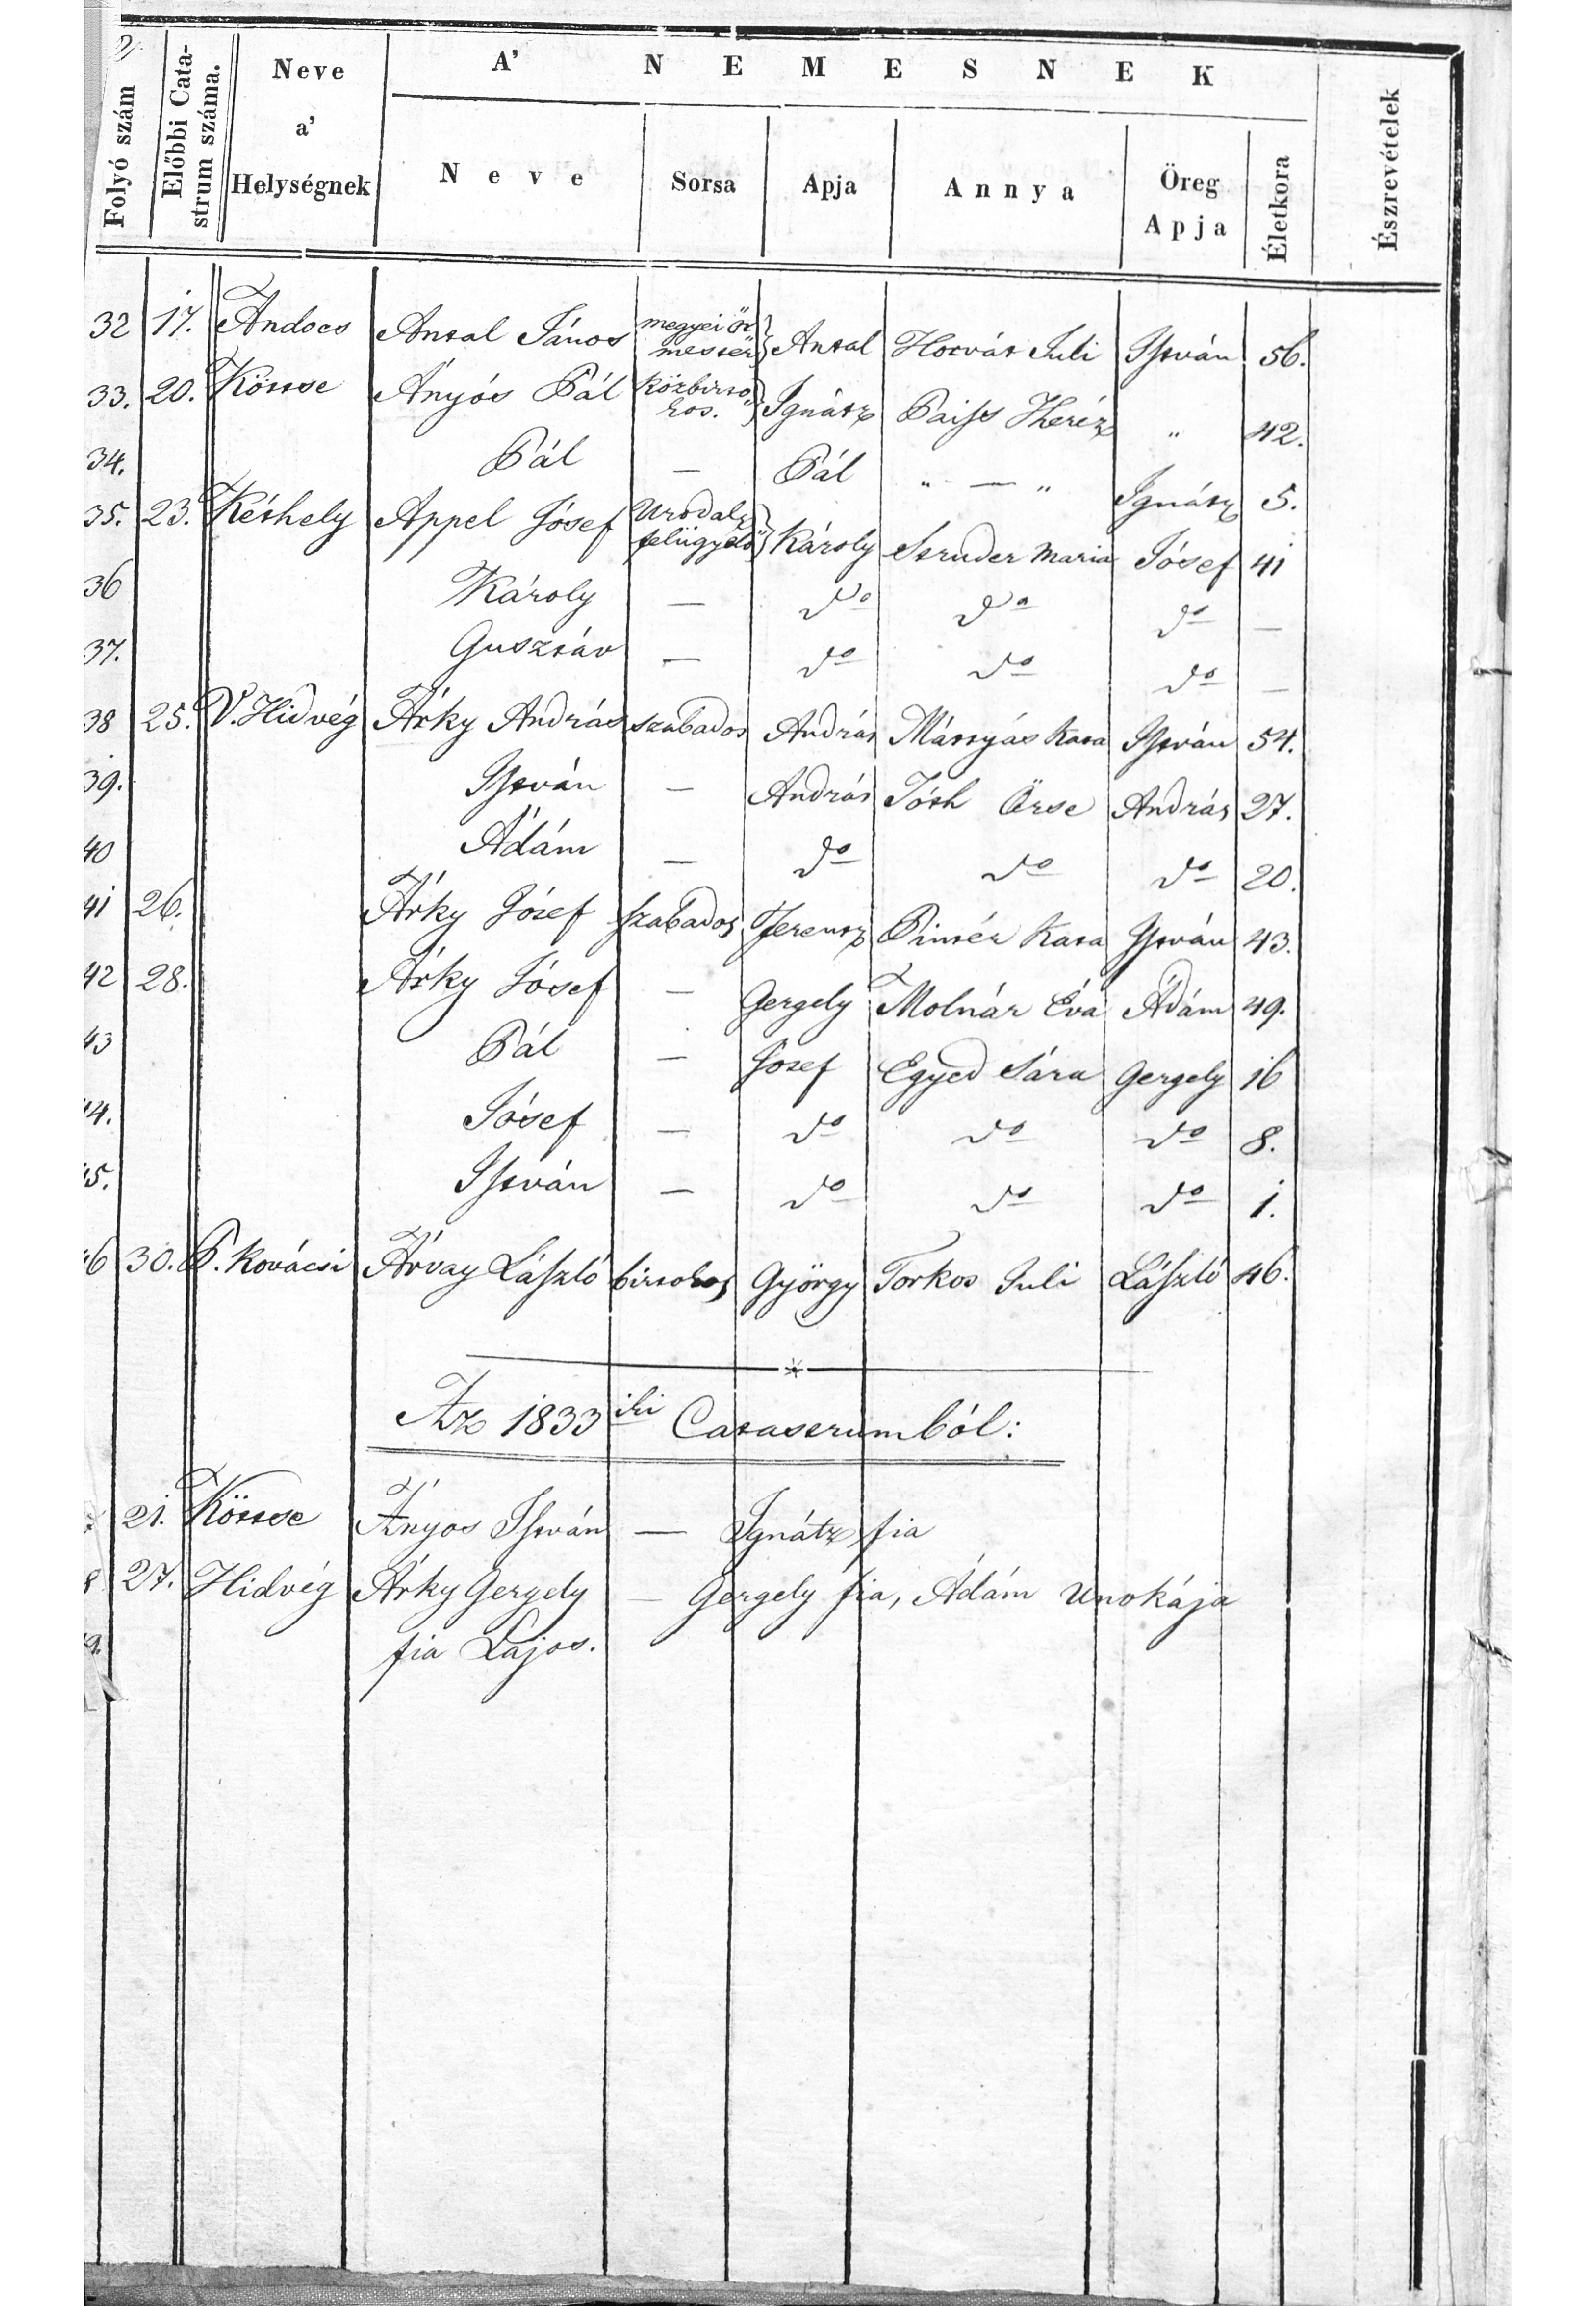 2.
Folyó szám
Előbbi Cata-
strum száma.
Neve
a'
Helységnek
A' NEMESNEK
Neve
Sorsa
Apja
Annya
Öreg
Apja
Életkora
Észrevételek
32 17. Andocs Antal János megyei őr mester Antal Horvát Juli István 56.
33. 20. Köttse Ányós Pál közbirtokos. Ignátz Paiss Theréz " 42.
34. Pál — Pál " — " Ignátz 5.
35. 23. Kéthely Appel Jósef Urodal. felügyelő Károly Struder Maria Jósef 41
36 Károly — do do do —
37. Gusztáv — do do do —
38 25. V. Hidvég Árky András szabados András Mártyás Kata István 54.
39. István — András Tóth Örse András 27.
40 Ádám — do do do 20.
41 26. Árky Jósef szabados Ferentz Pintér Kata István 43.
42 28. Árky Jósef — Gergely Molnár Éva Ádám 49.
43 Pál — Jósef Egyed Sára Gergely 16
44. Jósef — do do do 8.
45. István — do do do 1.
46 30. P. Kovácsi Árvay László birtokos György Torkos Juli László 46.
Az 1833iki Catastrumból:
21. Köttse Ányos István — Ignátz fia
27. Hidvég Árky Gergely — Gergely fia, Ádám Unokája
fia Lajos.